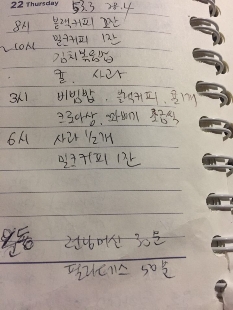 22 Thursday 53.3 28.4
8시 블랙커피 2잔
~10시 밀크커피 1잔
김치볶음밥
귤, 사과
3시 비빔밥, 블랙커피, 귤1개
크로아상, 꽈배기 조금씩
6시 사과 1/2개
밀크커피 1잔
운동 런닝머신 30분
필라테스 50분